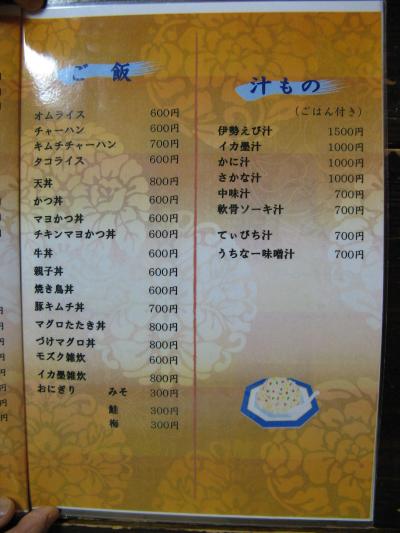 ご飯
オムライス 600円
チャーハン 600円
キムチチャーハン 700円
タコライス 600円
天丼 800円
かつ丼 600円
マヨかつ丼 600円
チキンマヨかつ丼 600円
牛丼 600円
親子丼 600円
焼き鳥丼 600円
豚キムチ丼 700円
マグロたたき丼 800円
づけマグロ丼 800円
モズク雑炊 600円
イカ墨雑炊 800円
おにぎり みそ 300円
鮭 300円
梅 300円
汁もの
(ごはん付き)
伊勢えび汁 1500円
イカ墨汁 1000円
かに汁 1000円
さかな汁 1000円
中味汁 700円
軟骨ソーキ汁 700円
てぃびち汁 700円
うちなー味噌汁 700円